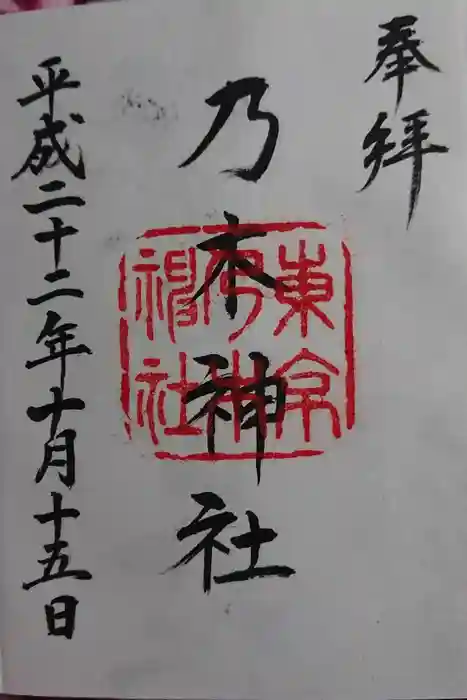 奉拝
乃木神社
東京
乃木
神社
平成二十二年十月十五日